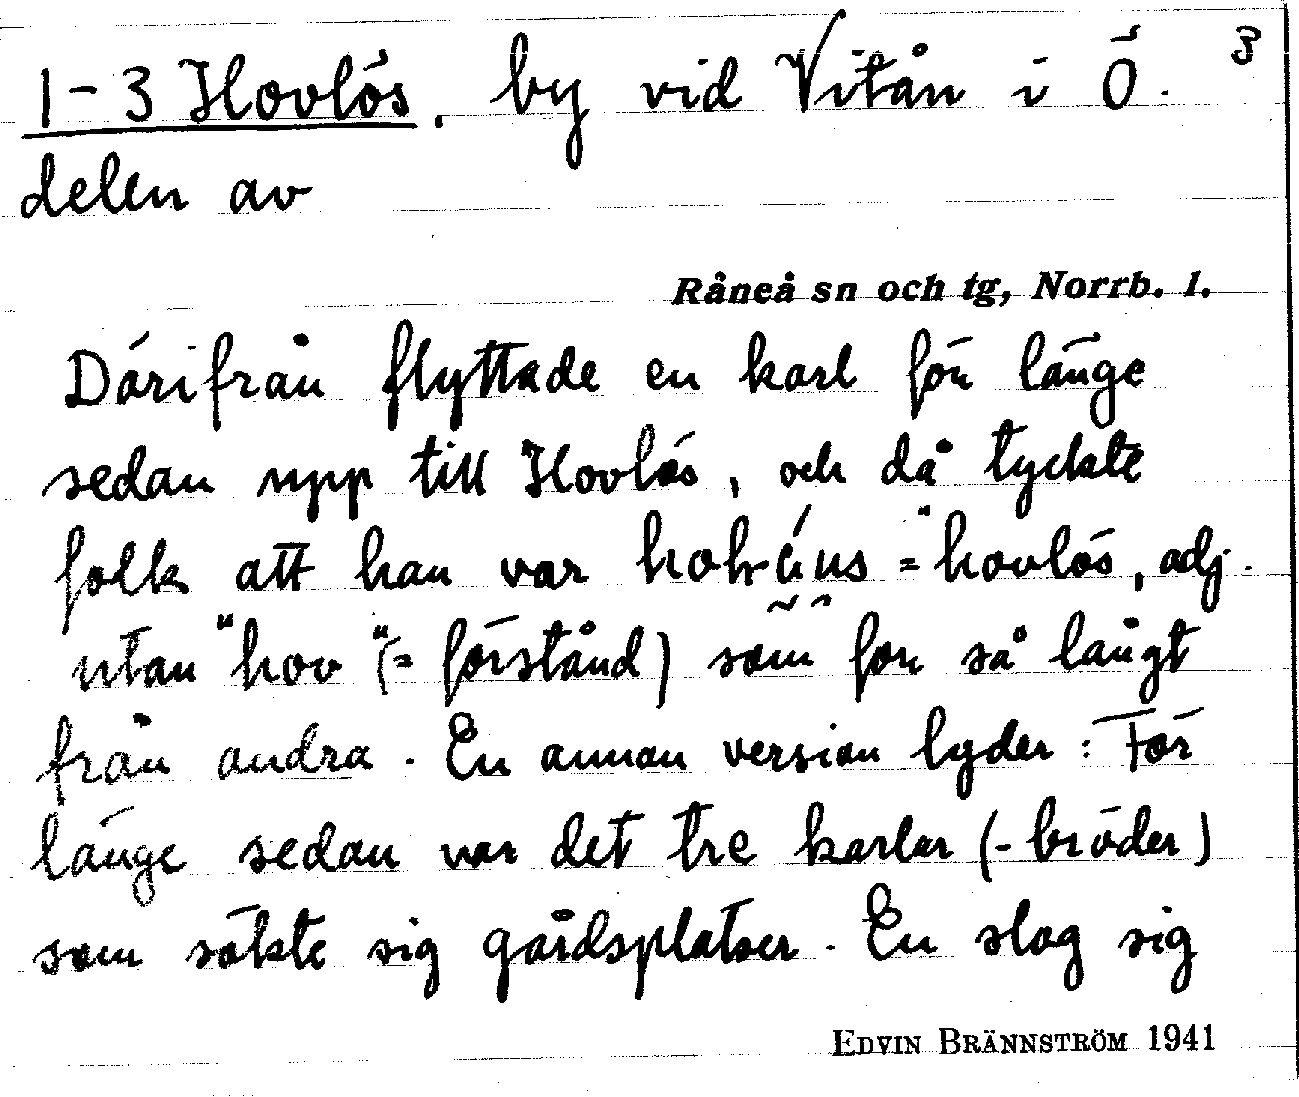 3
1-3 Hovlös, by vid Vitån i Ö.
delen av
Råneå sn och tg, Norrb. l.
Därifrån flyttade en karl för länge
sedan upp till Hovlös, och då tyckte
folk att han var = hovlös, adj.
utan "hov" (= förstånd) som for så långt
från andra. En annan version lyder: För
länge sedan var det tre karlar (-bröder)
som sökte sig gårdsplatser. En slog sig
EDVIN BRÄNNSTRÖM 1941